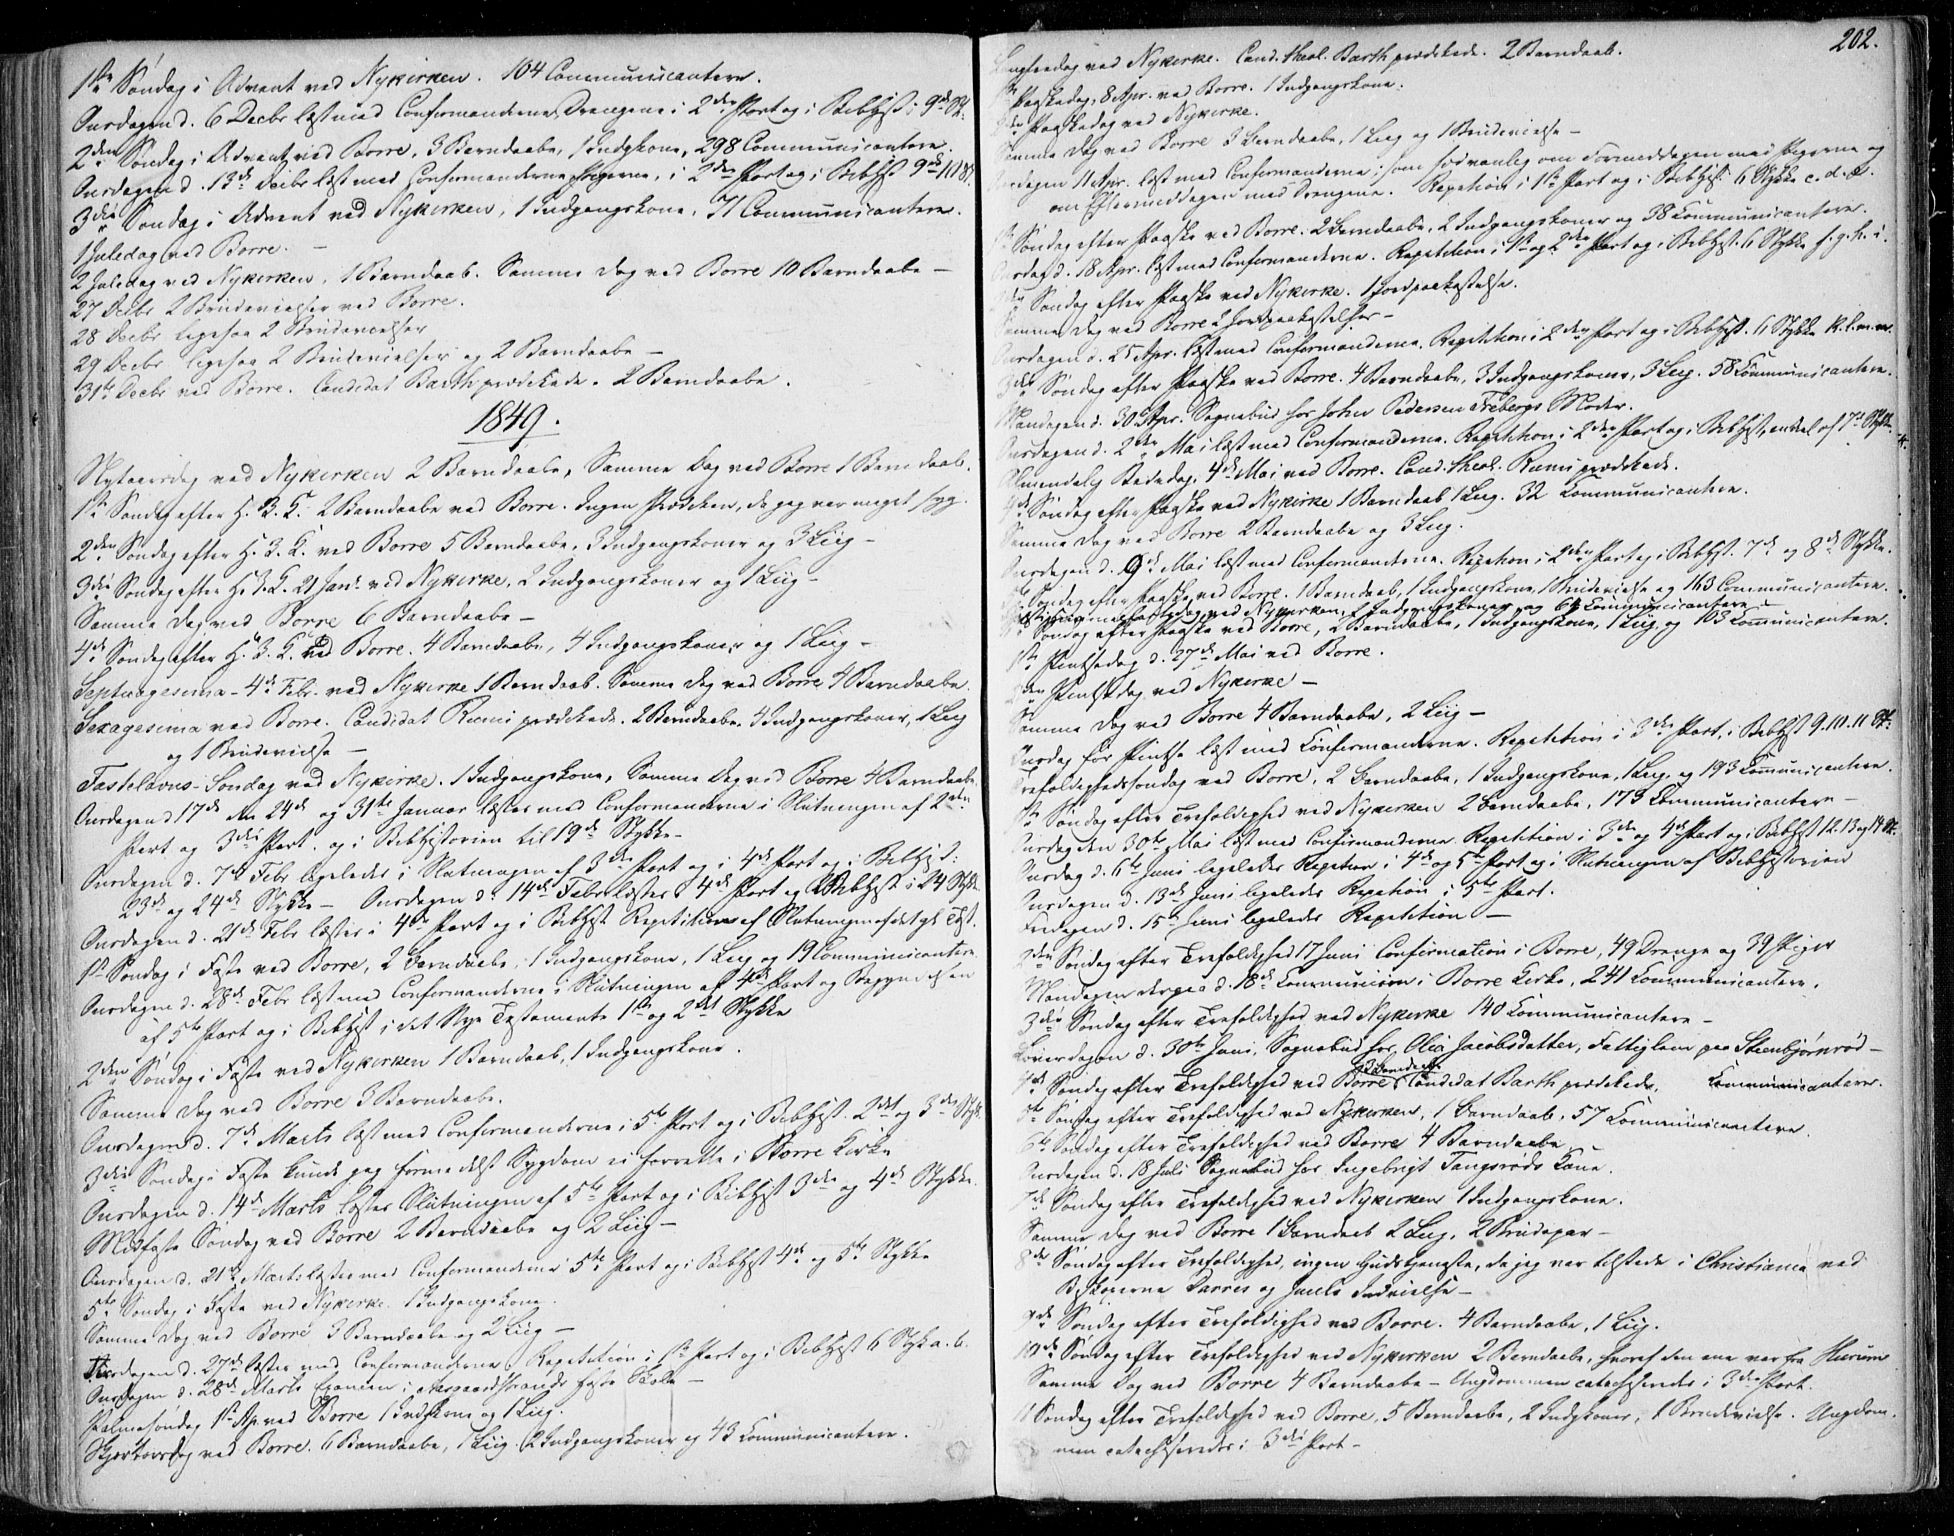 1ste Søndag i Advent ved Nykirken. 104 Communicantere.
Onsdagen d. 6 Decbr læst med Confirmanderne, Drengene i 2den Part og i Bibhist: 9de St.
2den Søndag i Advent ved Borre, 3 Barndaabe, 1 Indgkone, 298 Communicantere.
Onsdagen d. 13de Decbr læst med Confirmanderne Pigerne, i 2den Part og i Bibhist 9de 10 St.
3die Søndag i Advent ved Nykirken, 1 Indgangskone, 71 Communicantere.
1 Juledag ved Borre. –
2 Juledag ved Nykirken, 1 Barndaab. Samme Dag ved Borre 10 Barndaabe –
27 Decbr 2 Brudevielser ved Borre.
28 Decbr ligesaa 2 Brudevielser
29 Decbr ligesaa 2 Brudevielser og 2 Barndaabe –
31te Decbr ved Borre. Candidat Barth prædikede. 2 Barndaabe.
1849.
Nytaarsdag ved Nykirken 2 Barndaabe, Samme Dag ved Borre 1 Barndaab.
1ste Søndag efter H. 3. K. 2 Barndaabe ved Borre. Ingen Prædiken, da jeg var meget syg.
2den Søndag efter H. 3. K. ved Borre 5 Barndaabe, 3 Indgangskoner og 3 Liig –
3die Søndag efter H. 3. K. 21 Jan. ved Nykirke, 2 Indgangskoner og 1 Liig –
Samme Dag ved Borre 6 Barndaabe –
4de Søndag efter H. 3. K. ved Borre. 4 Barndaabe, 4 Indgangskoner og 1 Liig –
Septuagesima – 4de Febr. ved Nykirke 1 Barndaab. Samme Dag ved Borre 4 Barndaabe.
Sexagesima ved Borre. Candidat Rumi prædikede. 2 Barndaabe. 4 Indgangskoner, 1 Liig
og 1 Brudevielse –
Fastelavns-Søndag ved Nykirke. 1 Indgangskone, Samme Dag ved Borre 4 Barndaabe
Onsdagen d 17de 24de og 31te Januar læstes med Confirmanderne i Slutningen af 2den
Part og 3die Part. og i Bibhistorien til 19de Stykke –
Onsdagen d. 7de Febr ligeledes i Slutningen af 3die Part og i 4de Part og i Bibhist:
23de og 24de Stykke – Onsdagen d. 14de Febr læstes i 4de Part og i Bibhist i 24 Stykke
Onsdagen d. 21de Febr læstes i 4de Part og i Bibhist Repetition af Slutningen af det gl. Test.
1ste Søndag i Faste ved Borre, 2 Barndaabe, 1 Indgangskone, 1 Liig og 19 Communicantere
Onsdagen d. 28de Febr læst med Confirmanderne i Slutningen af 4de Part og Begyndelsen
af 5te Part og i Bibhist i det Nye Testamente 1ste og 2det Stykke
2den Søndag i Faste ved Nykirken 1 Barndaab, 1 Indgangskone.
Samme Dag ved Borre 3 Barndaabe.
Onsdagen d. 7de Marts læst med Confirmanderne i 5te Part og i Bibhist. 2det og 3die Stykke
3die Søndag i Faste kunde jeg formedelst Sygdom ei forrette i Borre Kirke
Onsdagen d. 14de Marts læstes Slutningen af 5te Part og i Bibhist 3die og 4de Stykke.
Midfaste Søndag ved Borre 2 Barndaabe og 2 Liig –
Onsdagen d. 21de Marts læstes med Confirmanderne 5te Part og i Bibhist 4de og 5te Stykke
5te Søndag i Faste ved Nykirke. 1 Indgangskone.
Samme Dag ved Borre 3 Barndaabe og 2 Liig –
Tirsdagen d. 27de læstes med Confirmanderne Repetition i 1ste Part og i Bibhist 6 Styk a. b.
Onsdagen d. 28de Marts Examen i Aasgaardstrands faste Skole –
Palmesøndag 1ste Ap. ved Borre 1 Indgkone og 1 Liig.
Skjertorsdag ved Borre. 6 Barndaabe, 1 Liig. 2 Indgangskoner og 43 Communicantere.
202.
Langfredag ved Nykirke. Cand. theol. Barth prædikede. 2 Barndaab.
1ste Paaskedag, 8 Apr. ved Borre. 1 Indgangskone.
2den Paaskedag ved Nykirke.
Samme Dag ved Borre 3 Barndaabe, 1 Liig og 1 Brudevielse –
Onsdagen 11 Apr. læst med Confirmanderne, som sædvanlig om Formiddagen med Pigerne og
om Eftermiddagen med Drengene. Repetition i 1ste Part og i Bibhist: 6 Stykke c. d. e.
1ste Søndag efter Paaske ved Borre. 2 Barndaabe, 2 Indgangskoner og 38 Communicantere.
Onsdag d. 18 Apr. læst med Confirmanderne. Repetition i 1ste og 2den Part og i Bibhist. 6 Stykke f. g. h. i.
2den Søndag efter Paaske ved Nykirke. 1 Jordpaakastelse.
Samme Dag ved Borre 2 Jordpaakastelser –
Onsdagen d. 25 Apr. læst med Confirmanderne. Repetition i 2den Part og i Bibhist. 6 Stykke k. l. m. n.
3die Søndag efter Paaske ved Borre. 4 Barndaabe, 3 Indgangskoner, 3 Liig. 58 Communicantere.
Mandagen d. 30 Apr. Sognebud hos Johan Pedersen Frebergs Moder.
Onsdagen d. 2den Mai læst med Confirmanderne. Repetition i 2den Part og i Bibhist, endel af 7de Stykke.
Almindelig Bededag, 4de Mai ved Borre. Cand. theol. Rumi prædikede.
4de Søndag efter Paaske ved Nykirke 1 Barndaab 1 Liig. 32 Communicantere.
Samme Dag ved Borre 2 Barndaabe og 3 Liig.
Onsdagen d. 9de Mai læst med Confirmanderne. Repetion i 2den Part og i Bibhist. 7de og 8de Stykke.
5te Søndag efter Paaske ved Borre. 1 Barndaab, 1 Indgangskone, 1 Brudevielse og 163 Communicantere.
Christi Himmelfartsdag ved Nykirken, 2 Indgangskoner og 64 Communicantere
6te Søndag efter Paaske ved Borre, 2 Barndaabe, 1 Indgangskone, 1 Liig og 103 Communicantere.
1ste Pintsedag d. 27de Mai ved Borre.
2den Pintsedag ved Nykirke –
Samme Dag ved Borre 4 Barndaabe, 2 Liig –
Onsdag før Pintse læst med Confirmanderne. Repetition i 3die Part, i Bibhist 9. 10. 11 St.
Trefoldighedssøndag ved Borre, 2 Barndaabe, 1 Indgangskone, 1 Liig, og 193 Communicantere.
1ste Søndag efter Trefoldighed ved Nykirken 2 Barndaabe, 173 Communicantere –
Onsdag den 30te Mai læst med Confirmanderne Repetition i 3die og 4de Part og i Bibhist 12. 13 og 14 St.
Onsdag d. 6te Juni ligeledes Repetion i 4de og 5te Part og i Slutningen af Bibhistorien
Onsdagen d. 13de Juni ligeledes Repetion i 5te Part.
Fredagen d. 15de Juni ligeledes Repetition –
2den Søndag efter Trefoldighed 17 Juni Confirmation i Borre, 49 Drenge og 39 Piger
Mandagen derpaa d. 18de Communion i Borre Kirke, 241 Communicantere.
3die Søndag efter Trefoldighed ved Nykirke 140 Communicantere –
Løverdagen d. 30te Juni, Sognebud hos Olea Jacobsdatter, Fattiglem paa Steenbjørnrød –
2 Barndaab
4de Søndag efter Trefoldighed ved Borre, Candidat Barth prædikede. Communicantere.
5te Søndag efter Trefoldighed ved Nykirken, 1 Barndaab, 57 Communicantere.
6te Søndag efter Trefoldighed ved Borre 4 Barndaabe
Onsdagen d. 18 Juli Sognebud hos Ingebrigt Tangsrøds Kone.
7de Søndag efter Trefoldighed ved Nykirken 1 Indgangskone.
Samme Dag ved Borre 1 Barndaab 2 Liig, 2 Brudepar –
8de Søndag efter Trefoldighed, ingen Gudstjeneste, da jeg var tilstede i Christiania ved
Biskoperne Darres og Juuls Indvielse –
9de Søndag efter Trefoldighed ved Borre. 4 Barndaabe, 1 Liig.
10de Søndag efter Trefoldighed ved Nykirken 2 Barndaabe, hvoraf den ene var fra Hurum
Samme Dag ved Borre 4 Barndaabe – Ungdommen catechiseredes i 3die Part.
11 Søndag efter Trefoldighed ved Borre, 5 Barndaabe, 2 Indgkoner, 1 Brudevielse. Ungdom-
men catechiseredes i 3die Part –